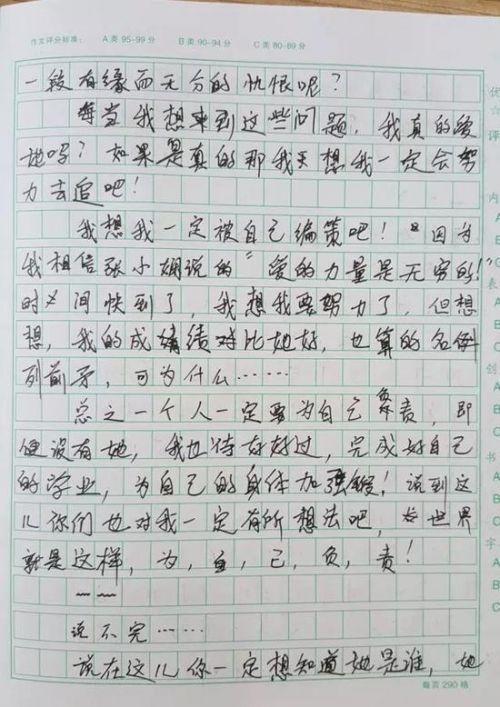 作文评分标准： A类95-99分 B类90-94分 C类80-89分
一段有缘而无分的忧恨呢？
每当我想来到这些问题，我真的爱
她吗？如果是真的那我想我一定会努
力去追吧！
我想我一定被自己编策吧！“因为
我相信张小娴说的“爱的力量是无穷的！
时间快到了，我想我要努力了，但想
想，我的成绩对比她好，也算的名例
列前矛，可为什么……
总之一个人一定要为自己负责，即
便没有她，我也待好好过，完成好自己
的学业，为自己的身体加强锻！说到这
儿你们也对我一定有所想法吧，世界
就是这样，为，自，己，负，责！
～～
说不完……
说在这儿你一定想知道她是谁，她
每页290格